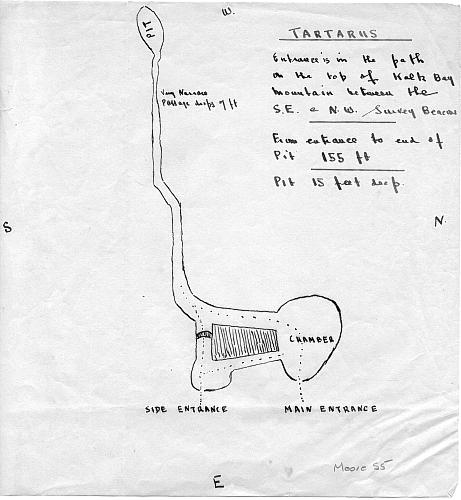 W.
PIT
TARTARUS
Entrance is in the path
on the top of Kalk Bay
mountain between the
S.E. & N.W. Survey Beacons
From entrance to end of
Pit 155 ft
Pit 15 feet deep.
Very Narrow
Passage drops 7 ft
S
N.
CHAMBER
SIDE ENTRANCE
MAIN ENTRANCE
Moore 55
E